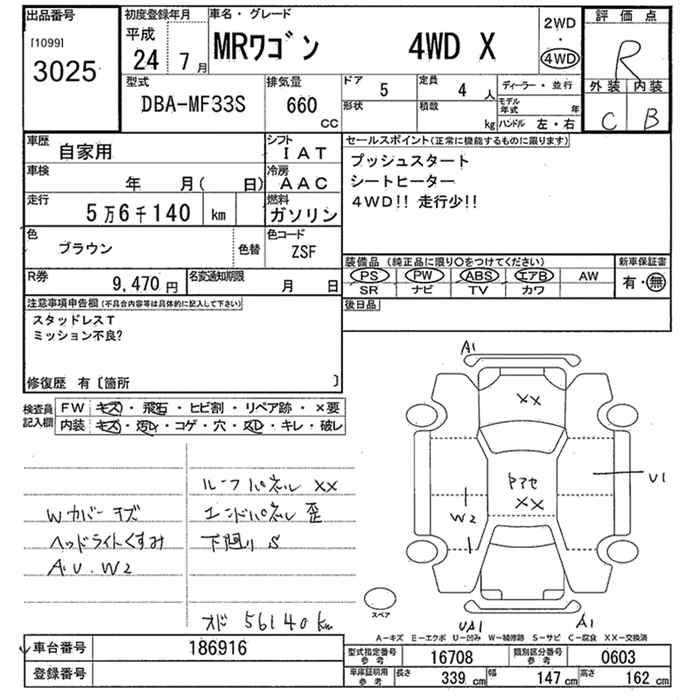 出品番号
[1099]
3025
初度登録年月
平成
24 7月
車名・グレード
MRワゴン 4WD X
2WD
・
4WD
評価点
R
外装 内装
C B
型式
DBA-MF33S
排気量
660 cc
ドア 5
定員 4 人
形状
積載 kg
ディーラー・並行
モデル年式 年
ハンドル 左・右
車歴
自家用
シフト
IAT
車検
年 月( 日)
冷房
AAC
走行
5万6千140 km
燃料
ガソリン
色
ブラウン
色替
色コード
ZSF
R券
9,470 円
名変通知期限
月 日
セールスポイント(正常に機能するものに限ります)
プッシュスタート
シートヒーター
4WD!! 走行少!!
装備品(純正品に限り○をつけてください)
PS PW ABS エアB AW
SR ナビ TV カワ
新車保証書
有・無
後日品
注意事項申告欄(不具合内容等は具体的に記入して下さい)
スタッドレスT
ミッション不良?
修復歴 有〔箇所 〕
検査員記入欄
FW キズ・飛石・ヒビ割・リペア跡・×要
内装 キズ・汚レ・コゲ・穴・スレ・キレ・破レ
Wカバー キズ
ヘッドライトくすみ
AU. W2
ルーフパネル XX
エンドパネル 歪
下廻り S
オド 56140km
A1
XX
XX
U1
W2
UA1
A1
スペア
A−キズ E−エクボ U−凹み W−補修跡 S−サビ C−腐食 XX−交換済
車台番号
186916
登録番号
型式指定番号 参考
16708
類別区分番号 参考
0603
車庫証明用 参考
長さ 339 cm
幅 147 cm
高さ 162 cm